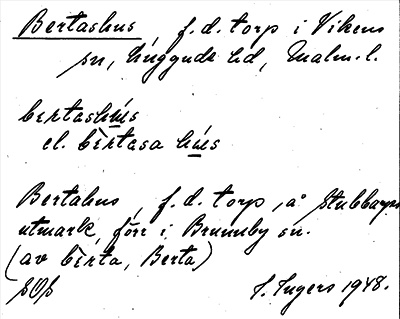 Bertashus f.d. torp i Vikens
sn, Luggude hd, Malm.l.
bertashus
el. bèrtasa hús
Bertahus, f.d. torp, å Stubbarps
utmark, förr i Brunnby sn.
(av bèrta, Berta)
I. Ingers 1948.